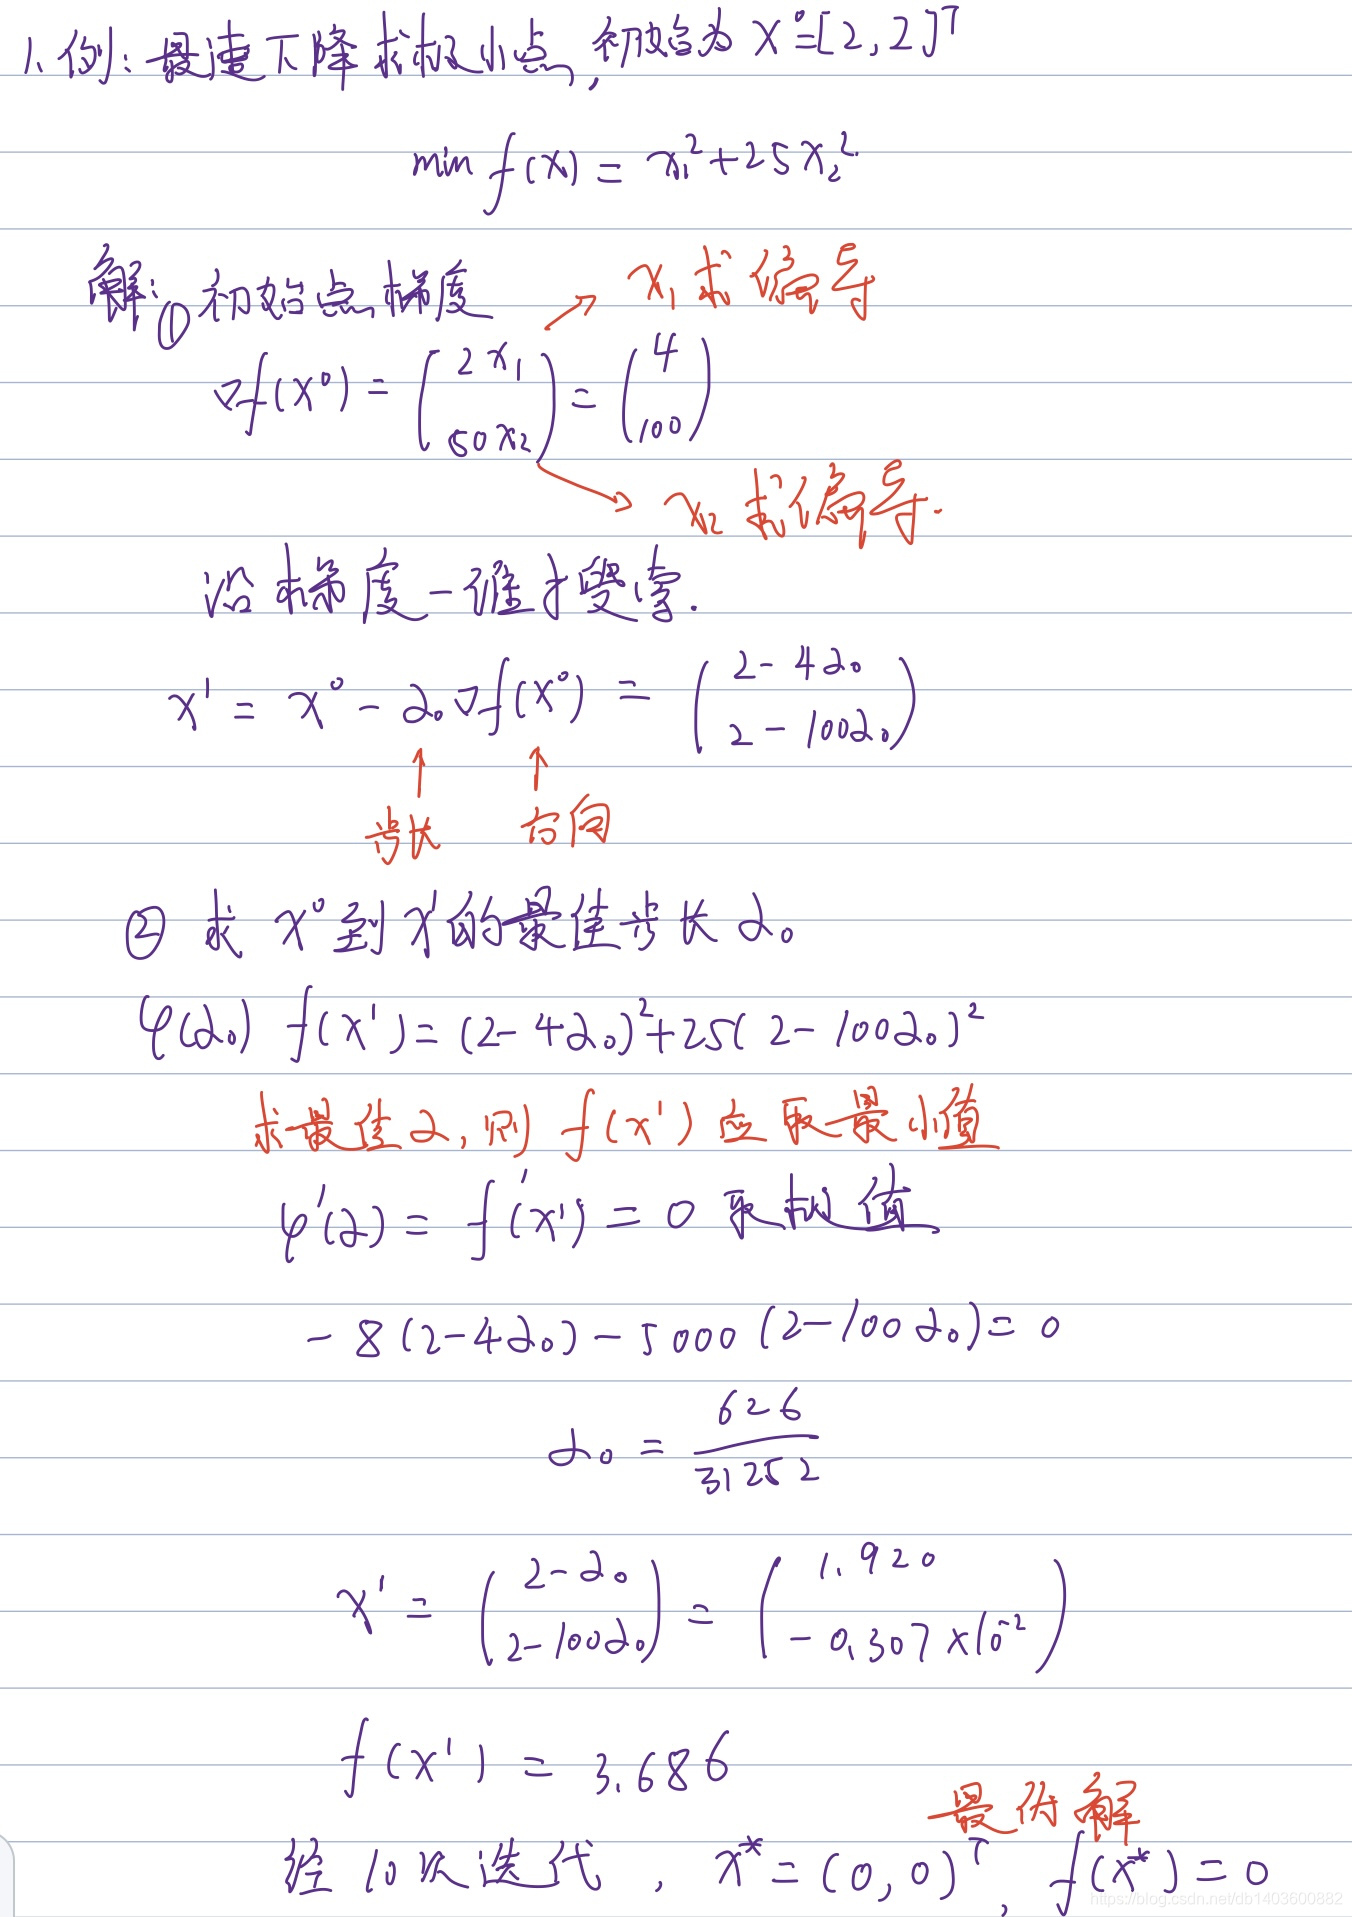 1.例:最速下降求极小点,初始点为 X⁰=[2,2]ᵀ
min f(x) = x₁²+25x₂²
解:①初始点梯度
x₁求偏导
∇f(X⁰) = (2x₁ 50x₂) = (4 100)
x₂求偏导.
沿梯度一维搜索.
x¹ = x⁰ - α₀∇f(x⁰) = (2-4α₀ 2-100α₀)
步长 方向
② 求 x⁰到x¹的最佳步长α₀
φ(α₀) f(x¹) = (2-4α₀)²+25(2-100α₀)²
求最佳α,则 f(x¹) 应取最小值
φ'(α) = f'(x¹) = 0 取极值
-8(2-4α₀)-5000(2-100α₀)=0
α₀ = 626/31252
x¹ = (2-α₀ 2-100α₀) = (1.920 -0.307×10⁻²)
f(x¹) = 3.686
最优解
经10次迭代, x*=(0,0)ᵀ, f(x*)=0
https://blog.csdn.net/db1403600882